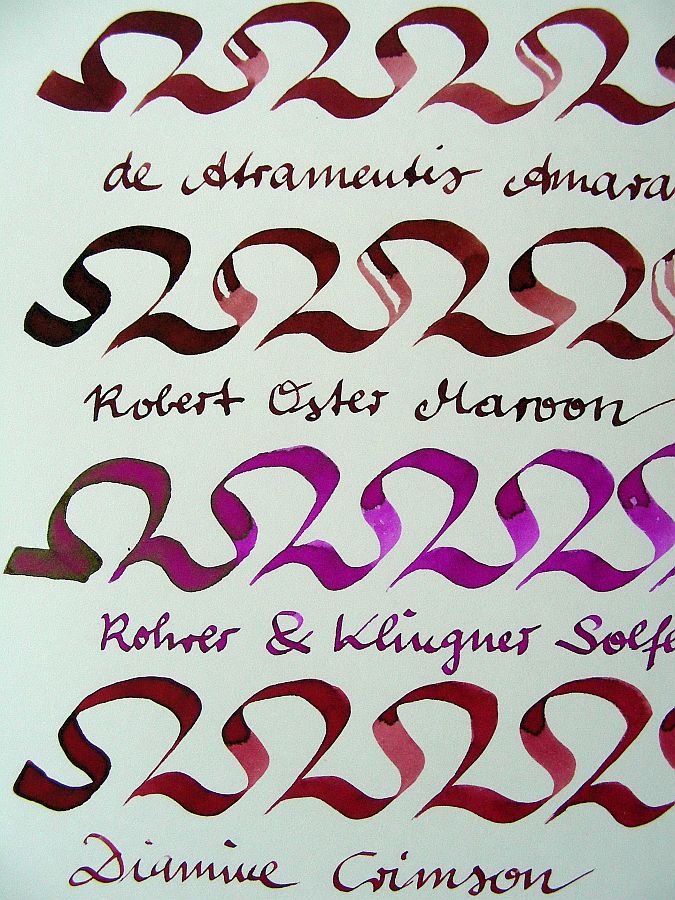 de Atramentis Amara
Robert Oster Maroon
Rohrer & Klingner Solfe
Diamine Crimson